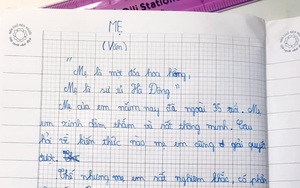 Dili Station
MẸ
(Văn)
" Mẹ là một đóa hoa hồng,
Mẹ là sư tử Hà Đông "
Mẹ của em năm nay đã ngoài 35 rồi. Mẹ
em xinh đằm thắm và rất thông minh. Câu
hỏi về kiến thức nào mẹ em cũng giải quyết
được.
Thế nhưng mẹ em rất nghiêm khắc, có phần